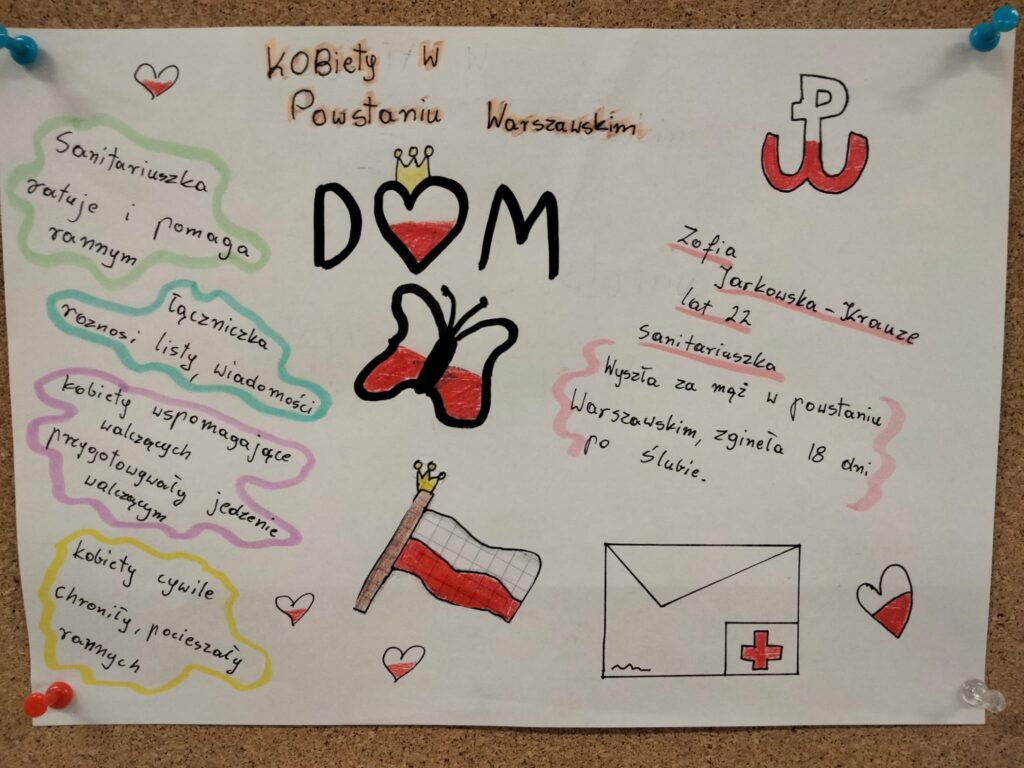 KOBiety w
Powstaniu Warszawskim
Sanitariuszka
ratuje i pomaga
rannym
łączniczka
roznosi listy, wiadomości
kobiety wspomagające
walczących
przygotowywały jedzenie
walczącym
kobiety cywile
chroniły, pocieszały
rannych
DOM
PW
Zofia
Jarkowska-Krauze
lat 22
sanitariuszka
Wyszła za mąż w powstaniu
Warszawskim, zgineła 18 dni
po ślubie.